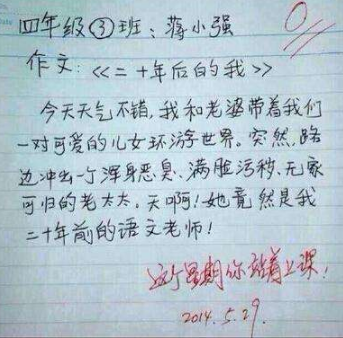 四年级③班:蒋小强
0
作文:<<二十年后的我>>
今天天气不错,我和老婆带着我们
一对可爱的儿女环游世界。突然,路
边冲出一个浑身恶臭、满脸污秽、无家
可归的老太太,天啊!她竟然是我
二十年前的语文老师!
这个星期你站着上课!
2014.5.29.